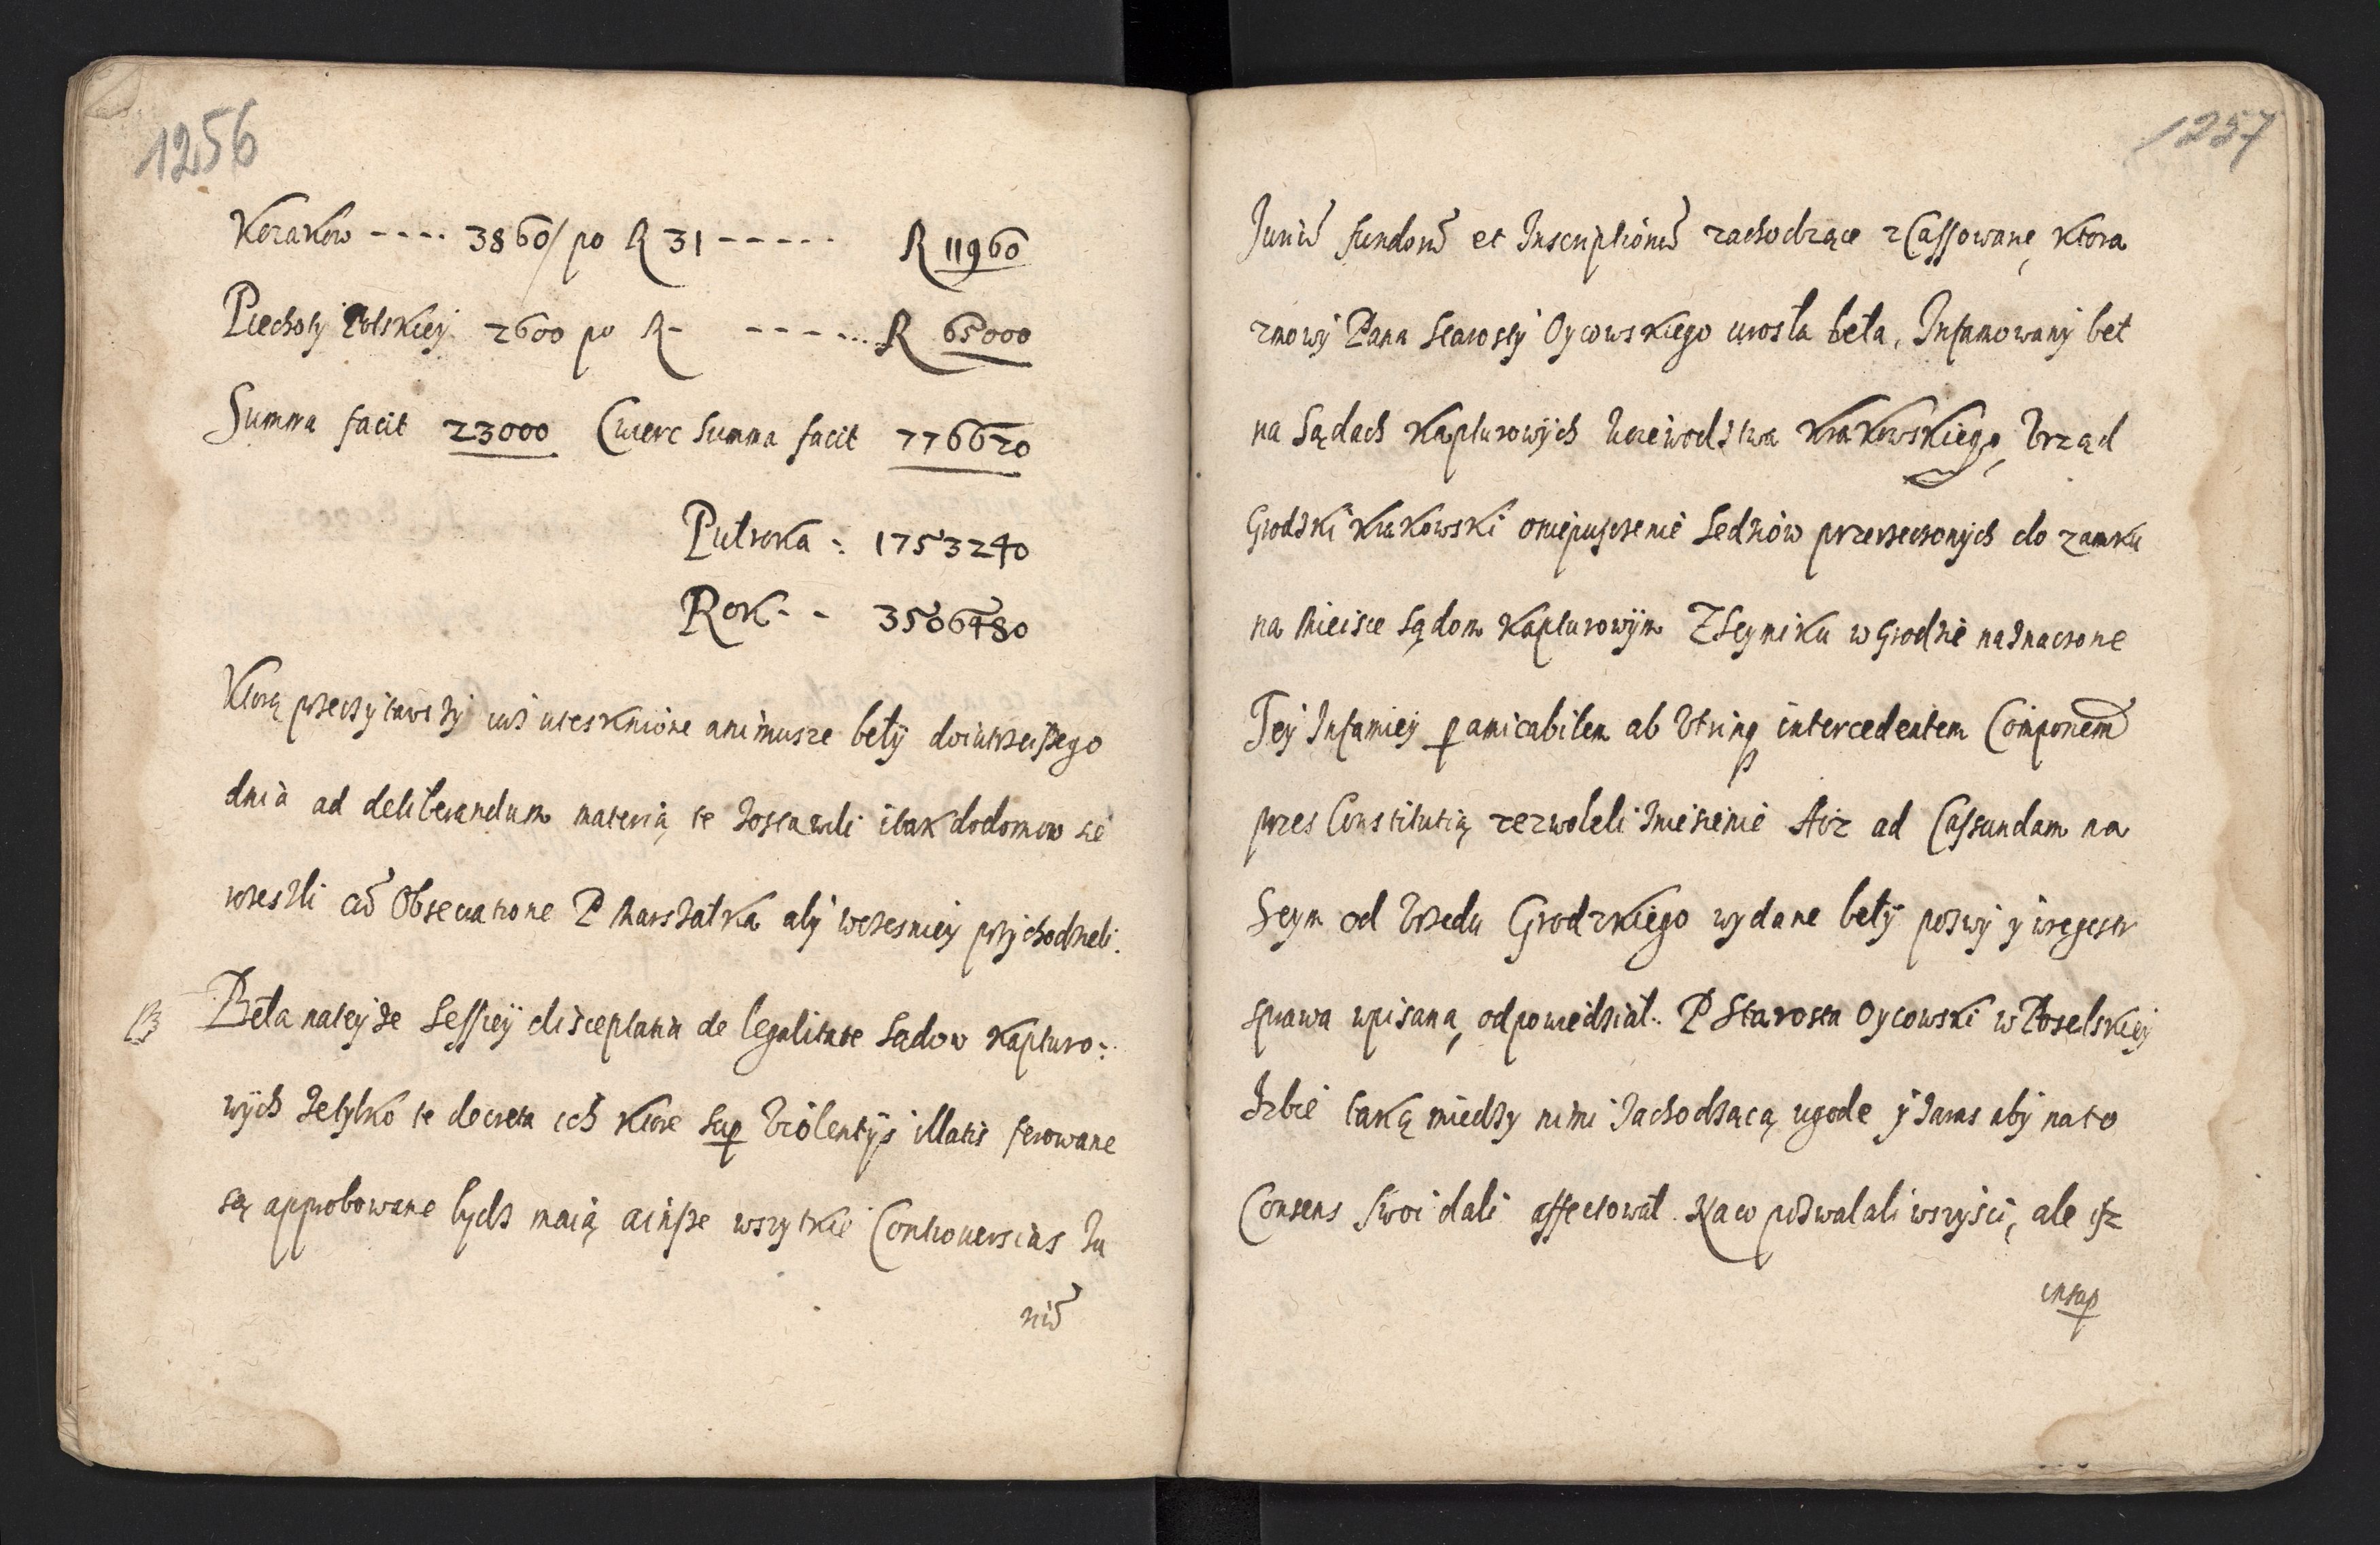 1256
Kozakow ---- 3860/ po R 31 ----- R 11960
Piechoty Polskiey 2600 po R- ----... R 65000
Summa facit 23000 Cwierc Summa facit 776620
Pulroka : 1753240
Rok - - 3506480
Ktorą przeczytawszy iuż utesknione animusze beły do iutrzeiszego
dnia ad deliberandum materią te zostawili i tak do domow sie
rozeszli cū Obsecratione P Marszałka aby wczesniey przychodzieli.
Beła na teyże Sessiey disceptatia de legalitate Sadow Kapturo:
wych że tylko te decreta ich ktore sup Violentys illatis ferowane
są approbowane bydz maią a insze wszytkie Controuersias Iu
riū
1257
Iuriū fundorū et Inscriptionū zachodzące zCassowane, ktora
zmowy Pana Starosty Oycowskiego urosła beła, Infamowany beł
na Sądach Kapturowych Woiewodztwa Krakowskiego, Vrząd
Grodzki Krakowski o niepuszczenie Sedziow przerzeczonych do zamku
na Mieisce Sądom Kapturowym Z Seymiku w Grodzie naznaczone
Tey Infamiey p amicabilem ab Vtrinq intercedentem Componem
przez Constitutią zezwoleli zniesienie Aiz ad Cassandam na
Seym od Vrzedu Grodzkiego wydane beły pozwy y w regestr
sprawa wpisana, odpowiedział. P Starosta Oycowski w Poselskiey
Izbie taką miedzy nimi zachodzącą ugode y zaraz aby na to
Consens swoi dali affectował. Na co pozwalali wszysci, ale isz
insup